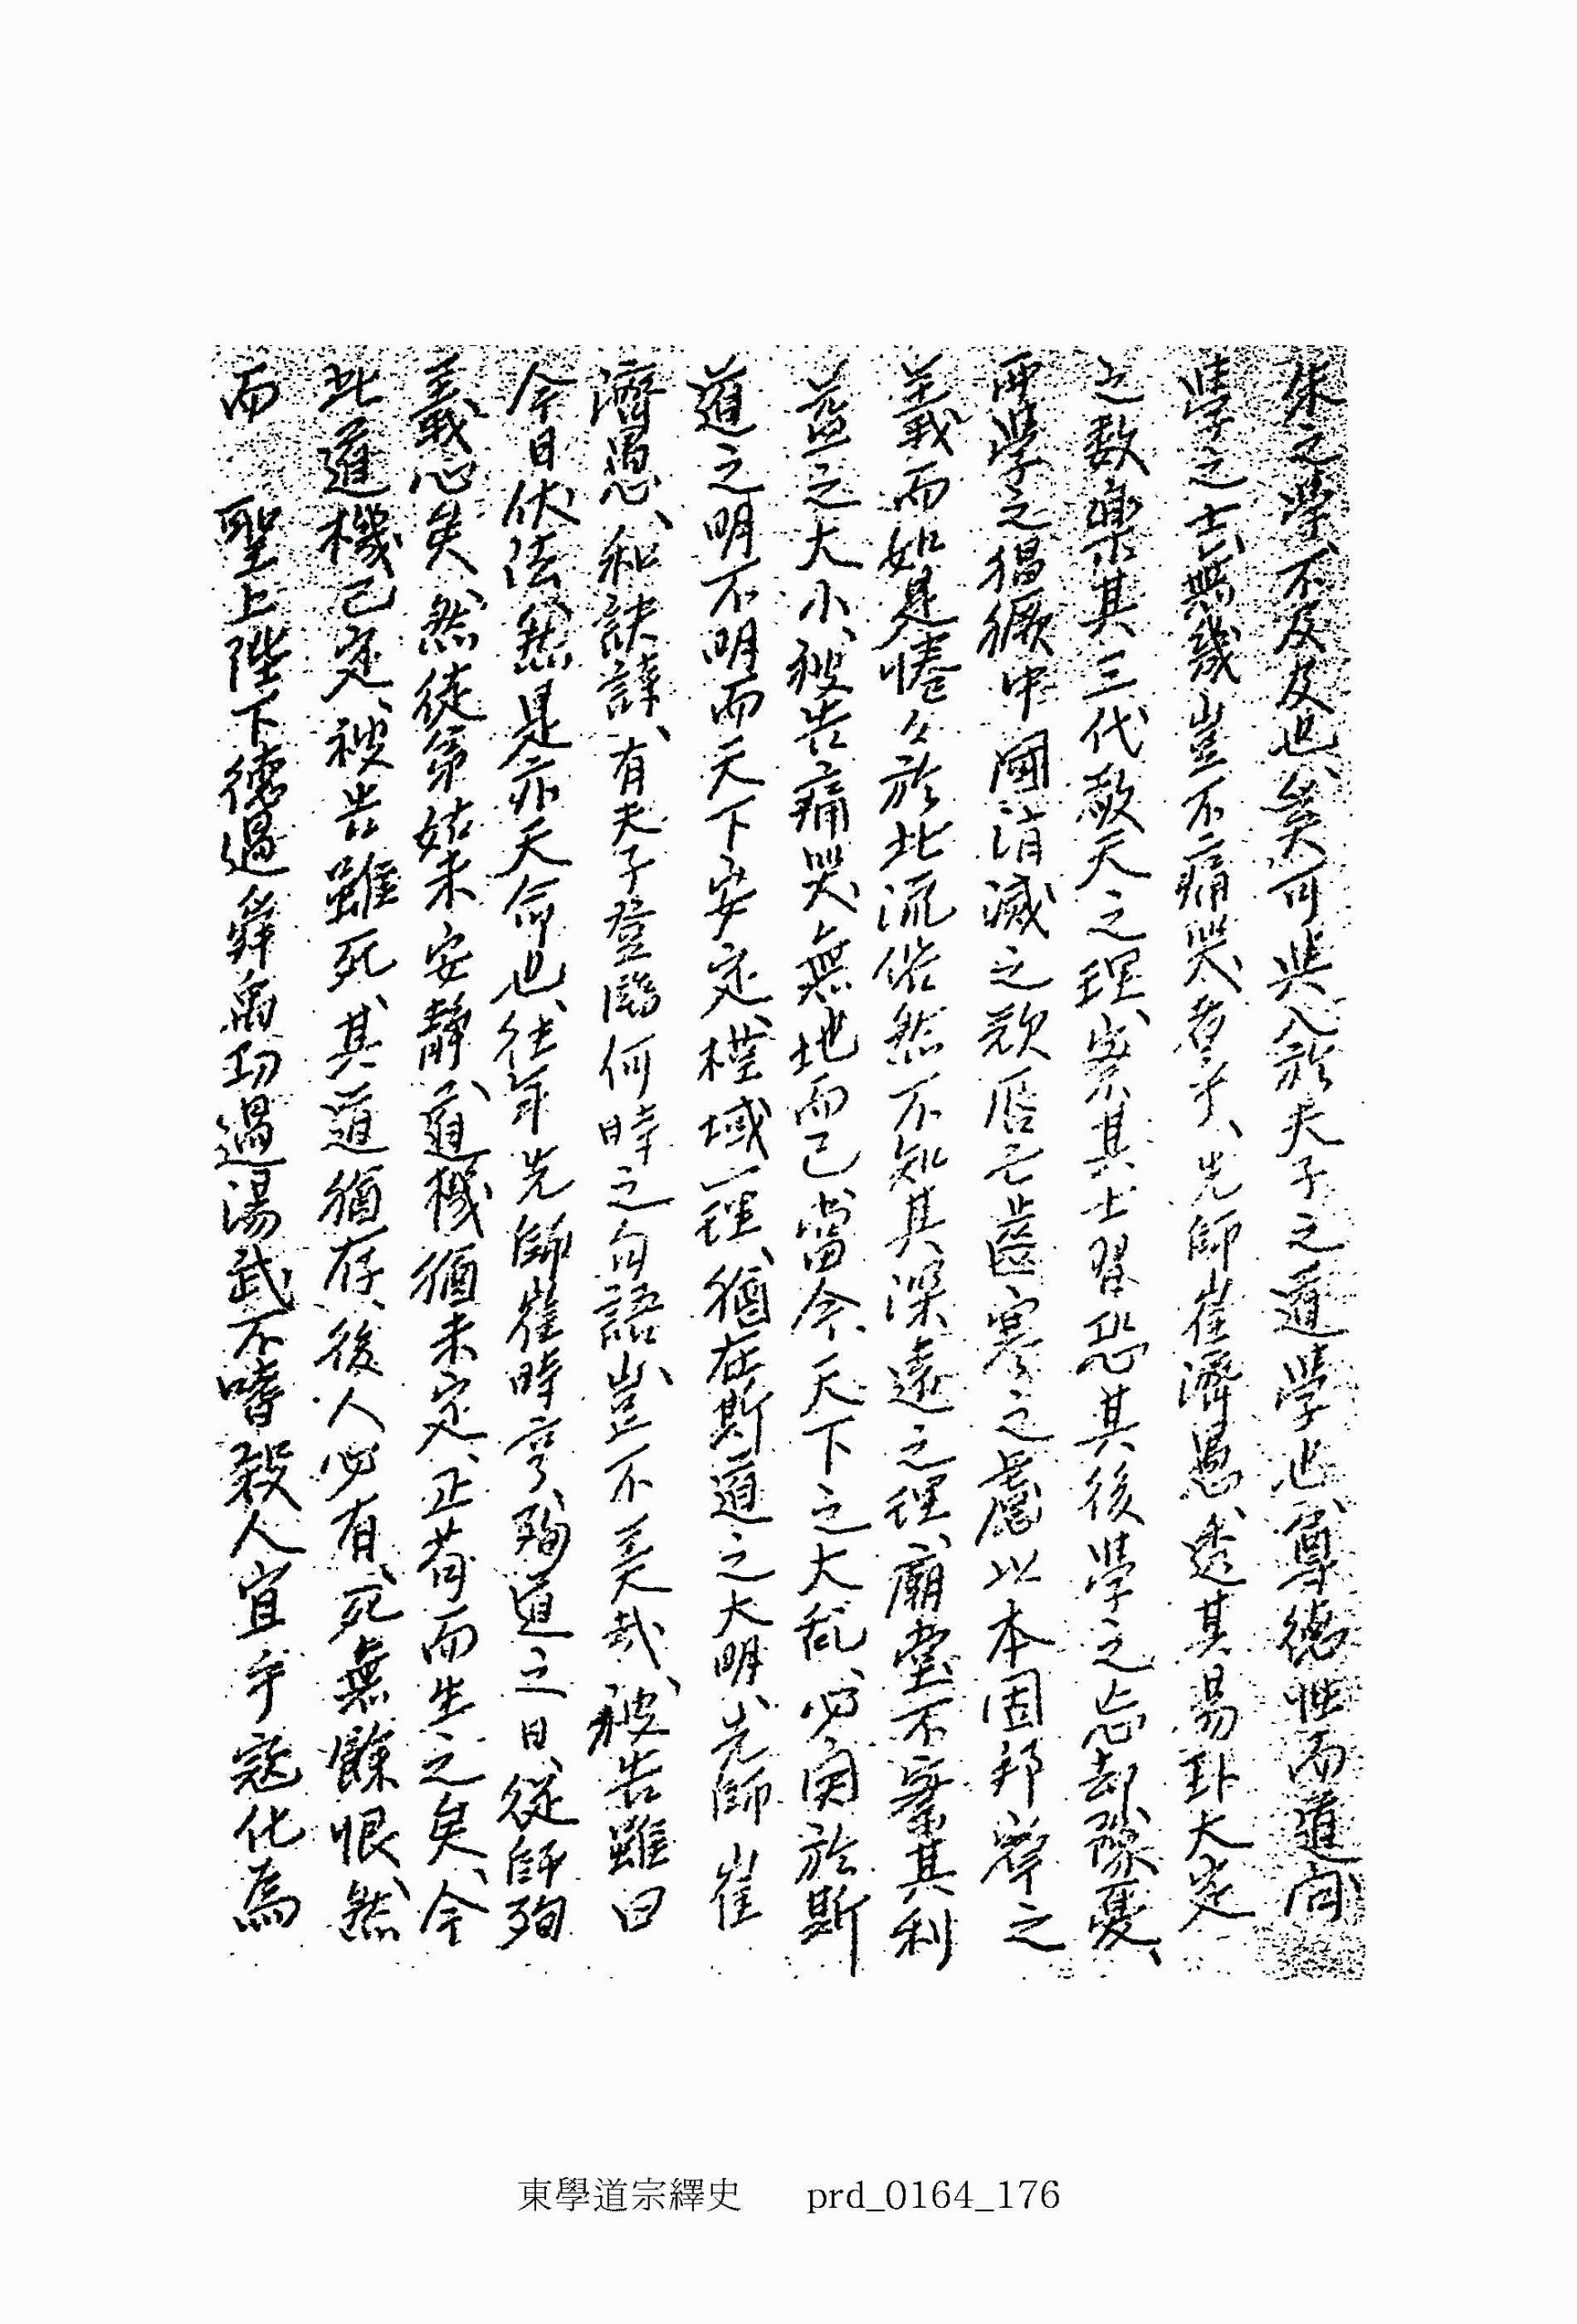 朱之學不及及也、奚可與入於夫子之道學也、尊德性而道問
學之士、無幾豈不痛哭者乎、先師崔濟愚、透其易卦大定
之数樂其三代敬天之理、崇其士習恐其後學之忘却隊憂、
西學之猖獗中國消滅之歎唇亡齒寒之慮以本固邦寧之
義而如是惓々於此流俗然不知其深遠之理、廟堂不察其利
益之大小、被告痛哭、無地而已、當今、天下之大乱、必関於斯
道之明不明而天下安定、權域一理、猶在斯道之大明、先師崔
濟愚、和訣詩、有夫子登臨何時之句語、豈不美哉、被告雖曰
今日伏法、然是亦天命也、往年先師崔時亨、殉道之日、從師殉
義心矣、然徒弟姑未安静、道機猶未定、正苟而生之矣、今
此道機已定、被告雖死、其道猶存、後人必有、死無餘恨、然
而 聖上陛下德過舜禹功過湯武不嗜殺人宜乎寇化爲
東學道宗繹史 prd_0164_176